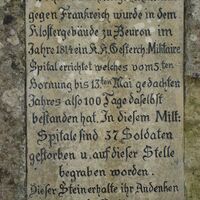 gegen Frankreich wurde in dem
Klostergebäude zu Beuron im
Jahre 1814 ein K.K. Oesterch. Militaire
Spital errichtet welches vom 3ten
Hornung bis 13ten Mai gedachten
Jahres also 100 Tage daselbst
bestanden hat. In diesem Milt:
Spitale sind 37 Soldaten
gestorben u. auf dieser Stelle
begraben worden.
Dieser Stein erhalte ihr Andenken